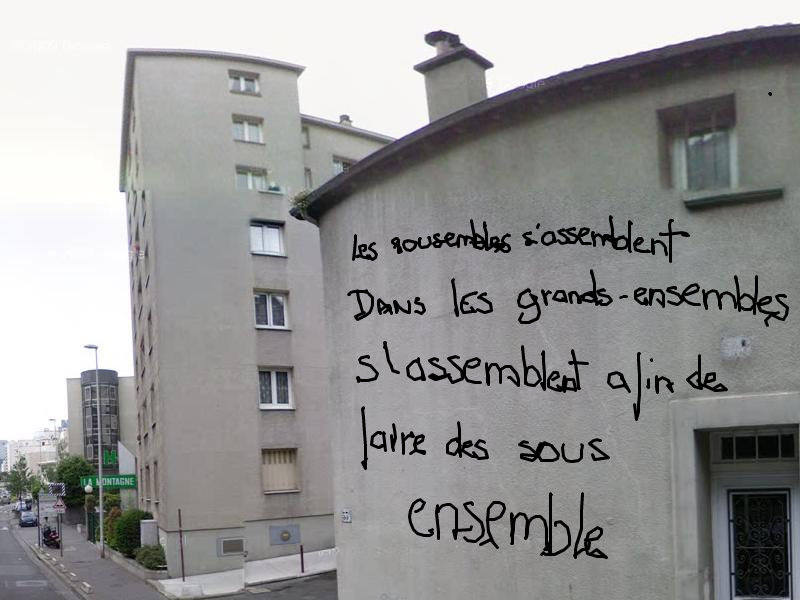 Les sousembles s'assemblent
DANS les grands-ensembles,
s'assemblent afin de
faire des sous
ensemble
LA MONTAGNE